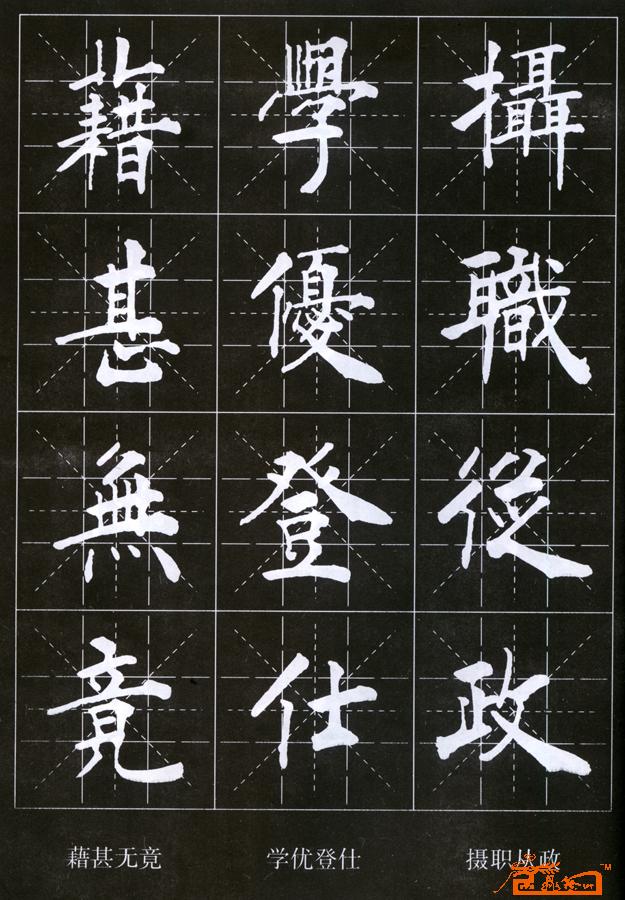 攝職從政
學優登仕
藉甚無竟
摄职从政
学优登仕
藉甚无竟